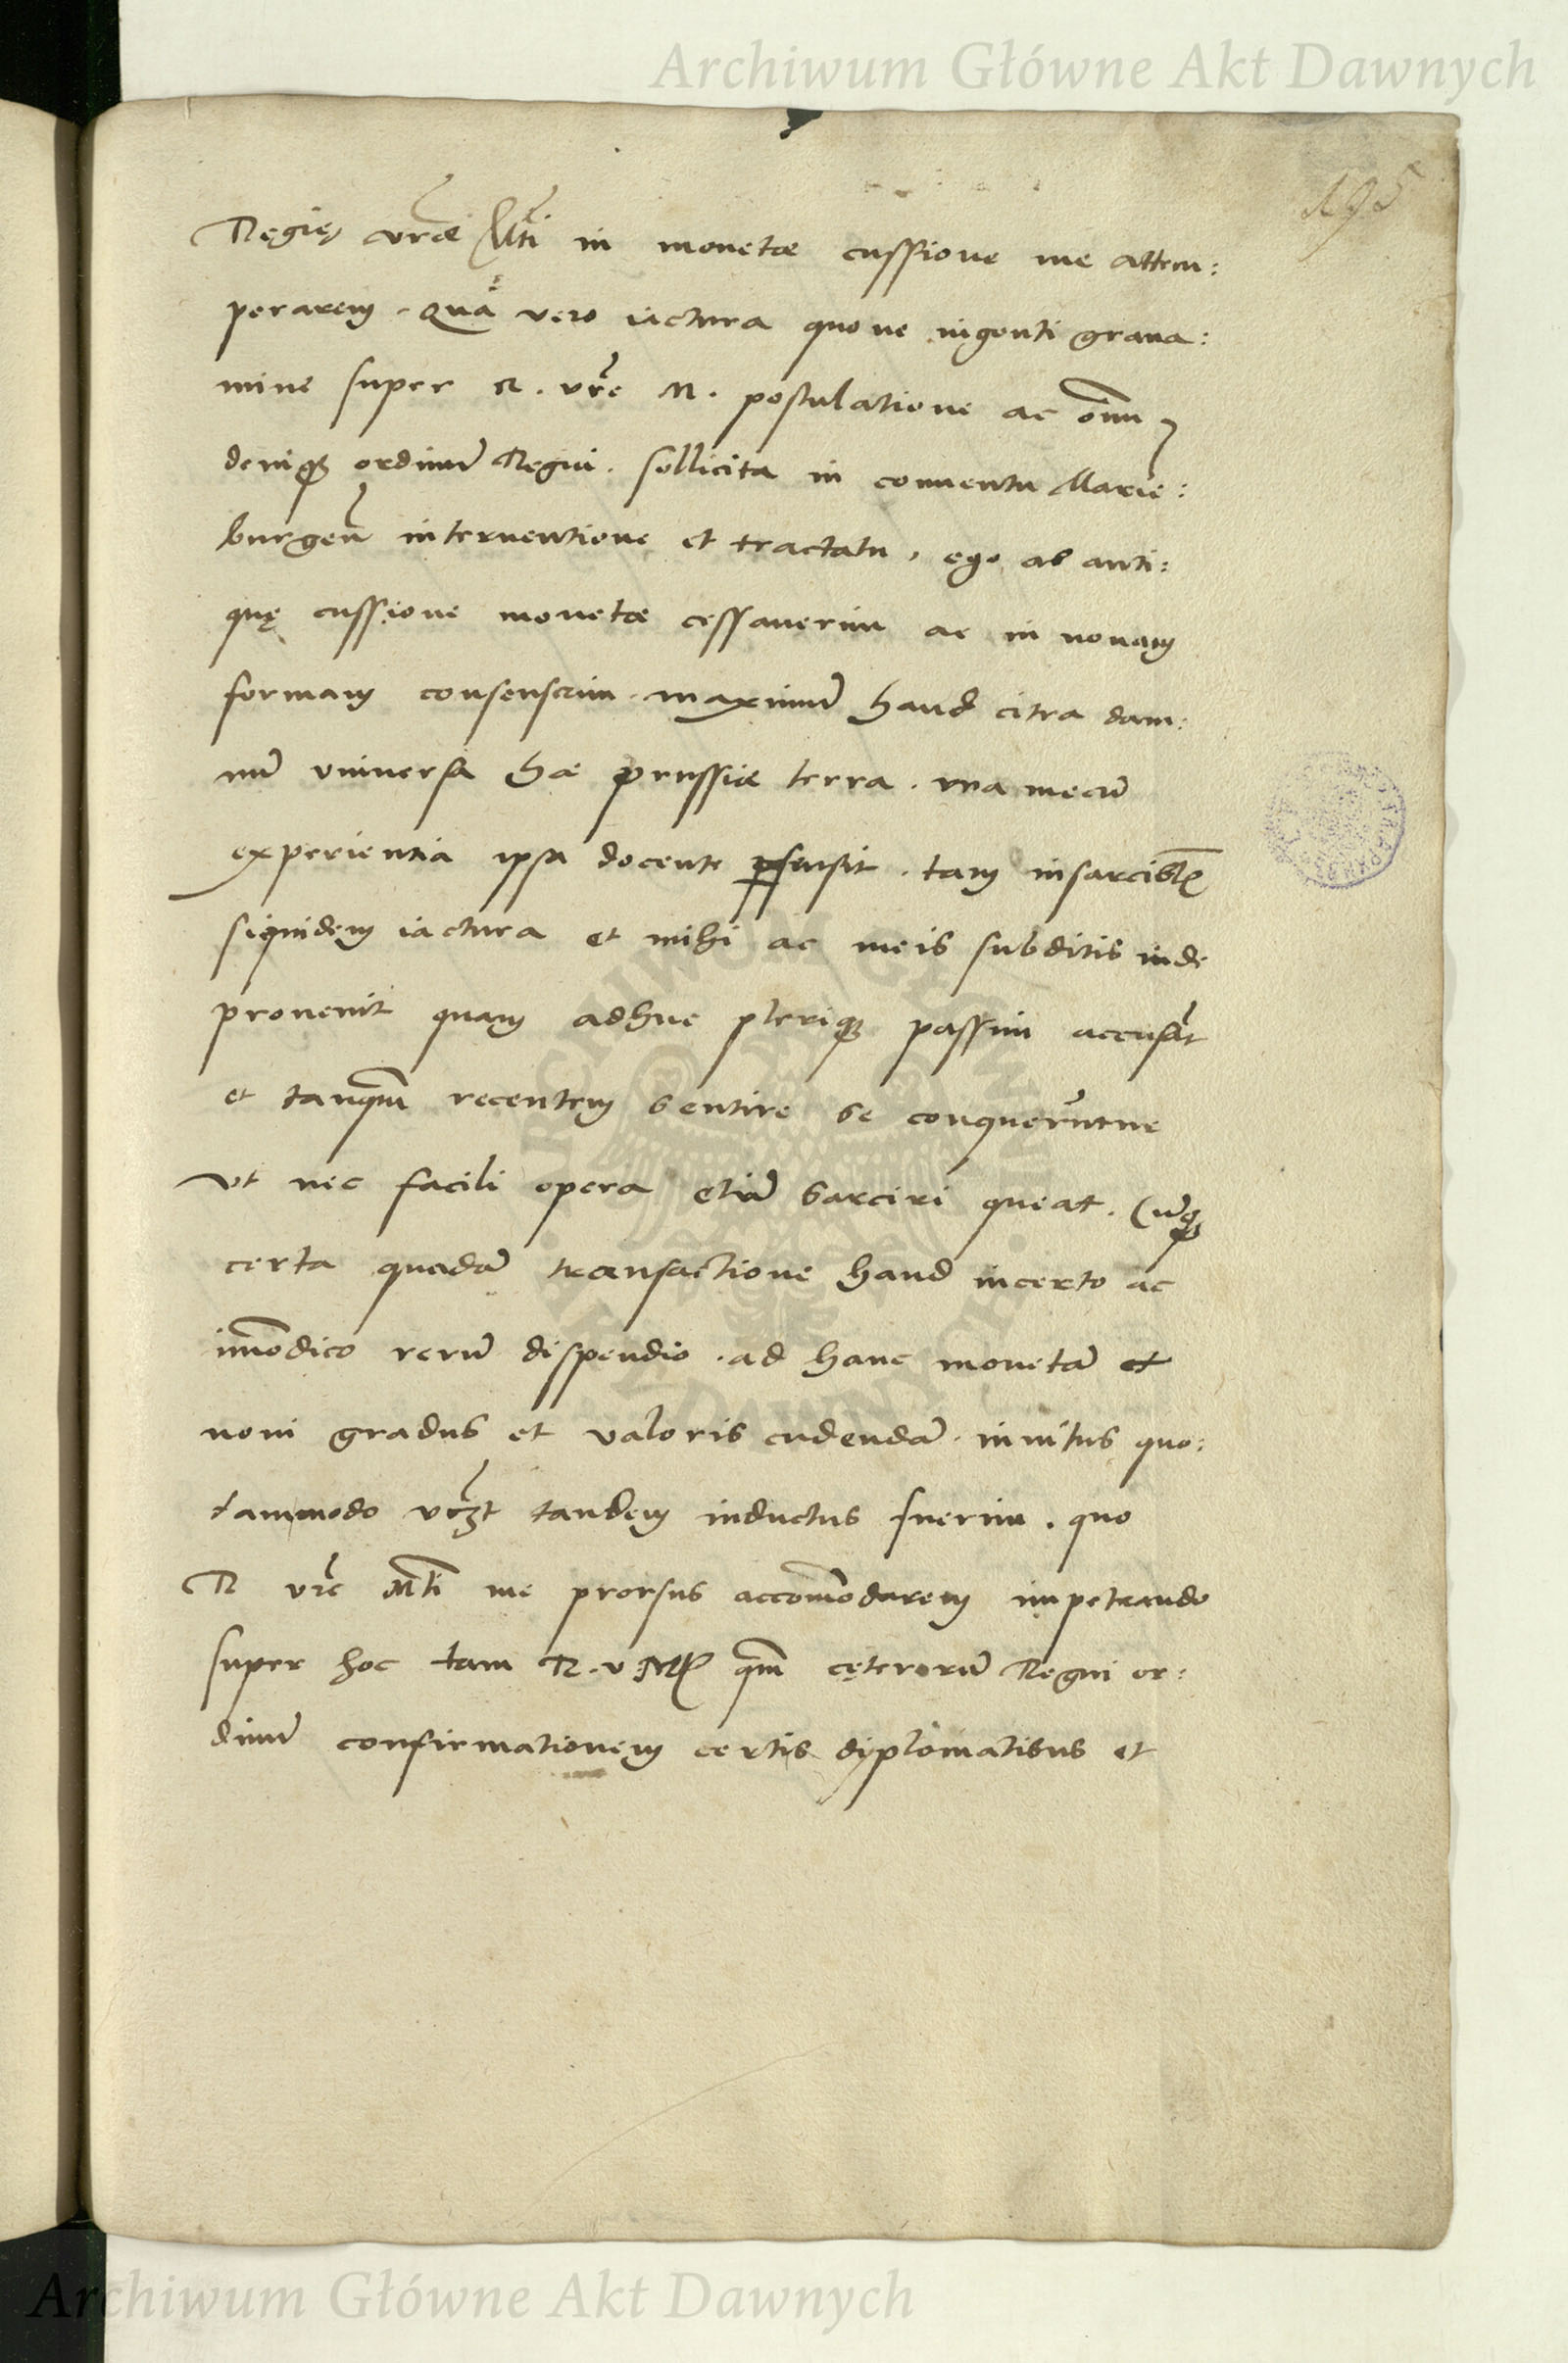 Archiwum Główne Akt Dawnych
195
Regię vr̃ae Mti in monetæ cussione me attem:
perarem. Quã vero iactura quo ve ingenti graua:
mine super R. vr̃e M. postulatione ac om̃iu
deniq3 ordinũ Regni. sollicita in conuentu Marie:
burgen̄ interuentione et tractatu, ego ab anti:
quę cussione monetæ cessauerim ac in nouam
formam consenserim. maximũ haud citra dam:
nũ vniuersa hæ prussiæ terra. vna mecũ
experientia ipsa docente persensit. tam insarcibl̃
siquidem iactura et mihi ac meis subditis inde
prouenit quam adhuc pleriq3 passim accusãt
et tanq̃m recentem sentire se conquerũtur
vt nec facili opera etiã sarciri queat. Cũq3
certa quadã transactione haud incerto ac
im̃odico rerũ dispendio. ad hanc monetã et
noui gradus et valoris cudendã. inuitus quo:
dammodo vt̃ tandem inductus fuerim. quo
R vr̃e Mti me prorsus accom̃odarem impetrando
super hoc tam R. v. Mtis q̃m cęterorũ Regni or:
dinũ confirmationem certis diplomatibus et
Archiwum Główne Akt Dawnych